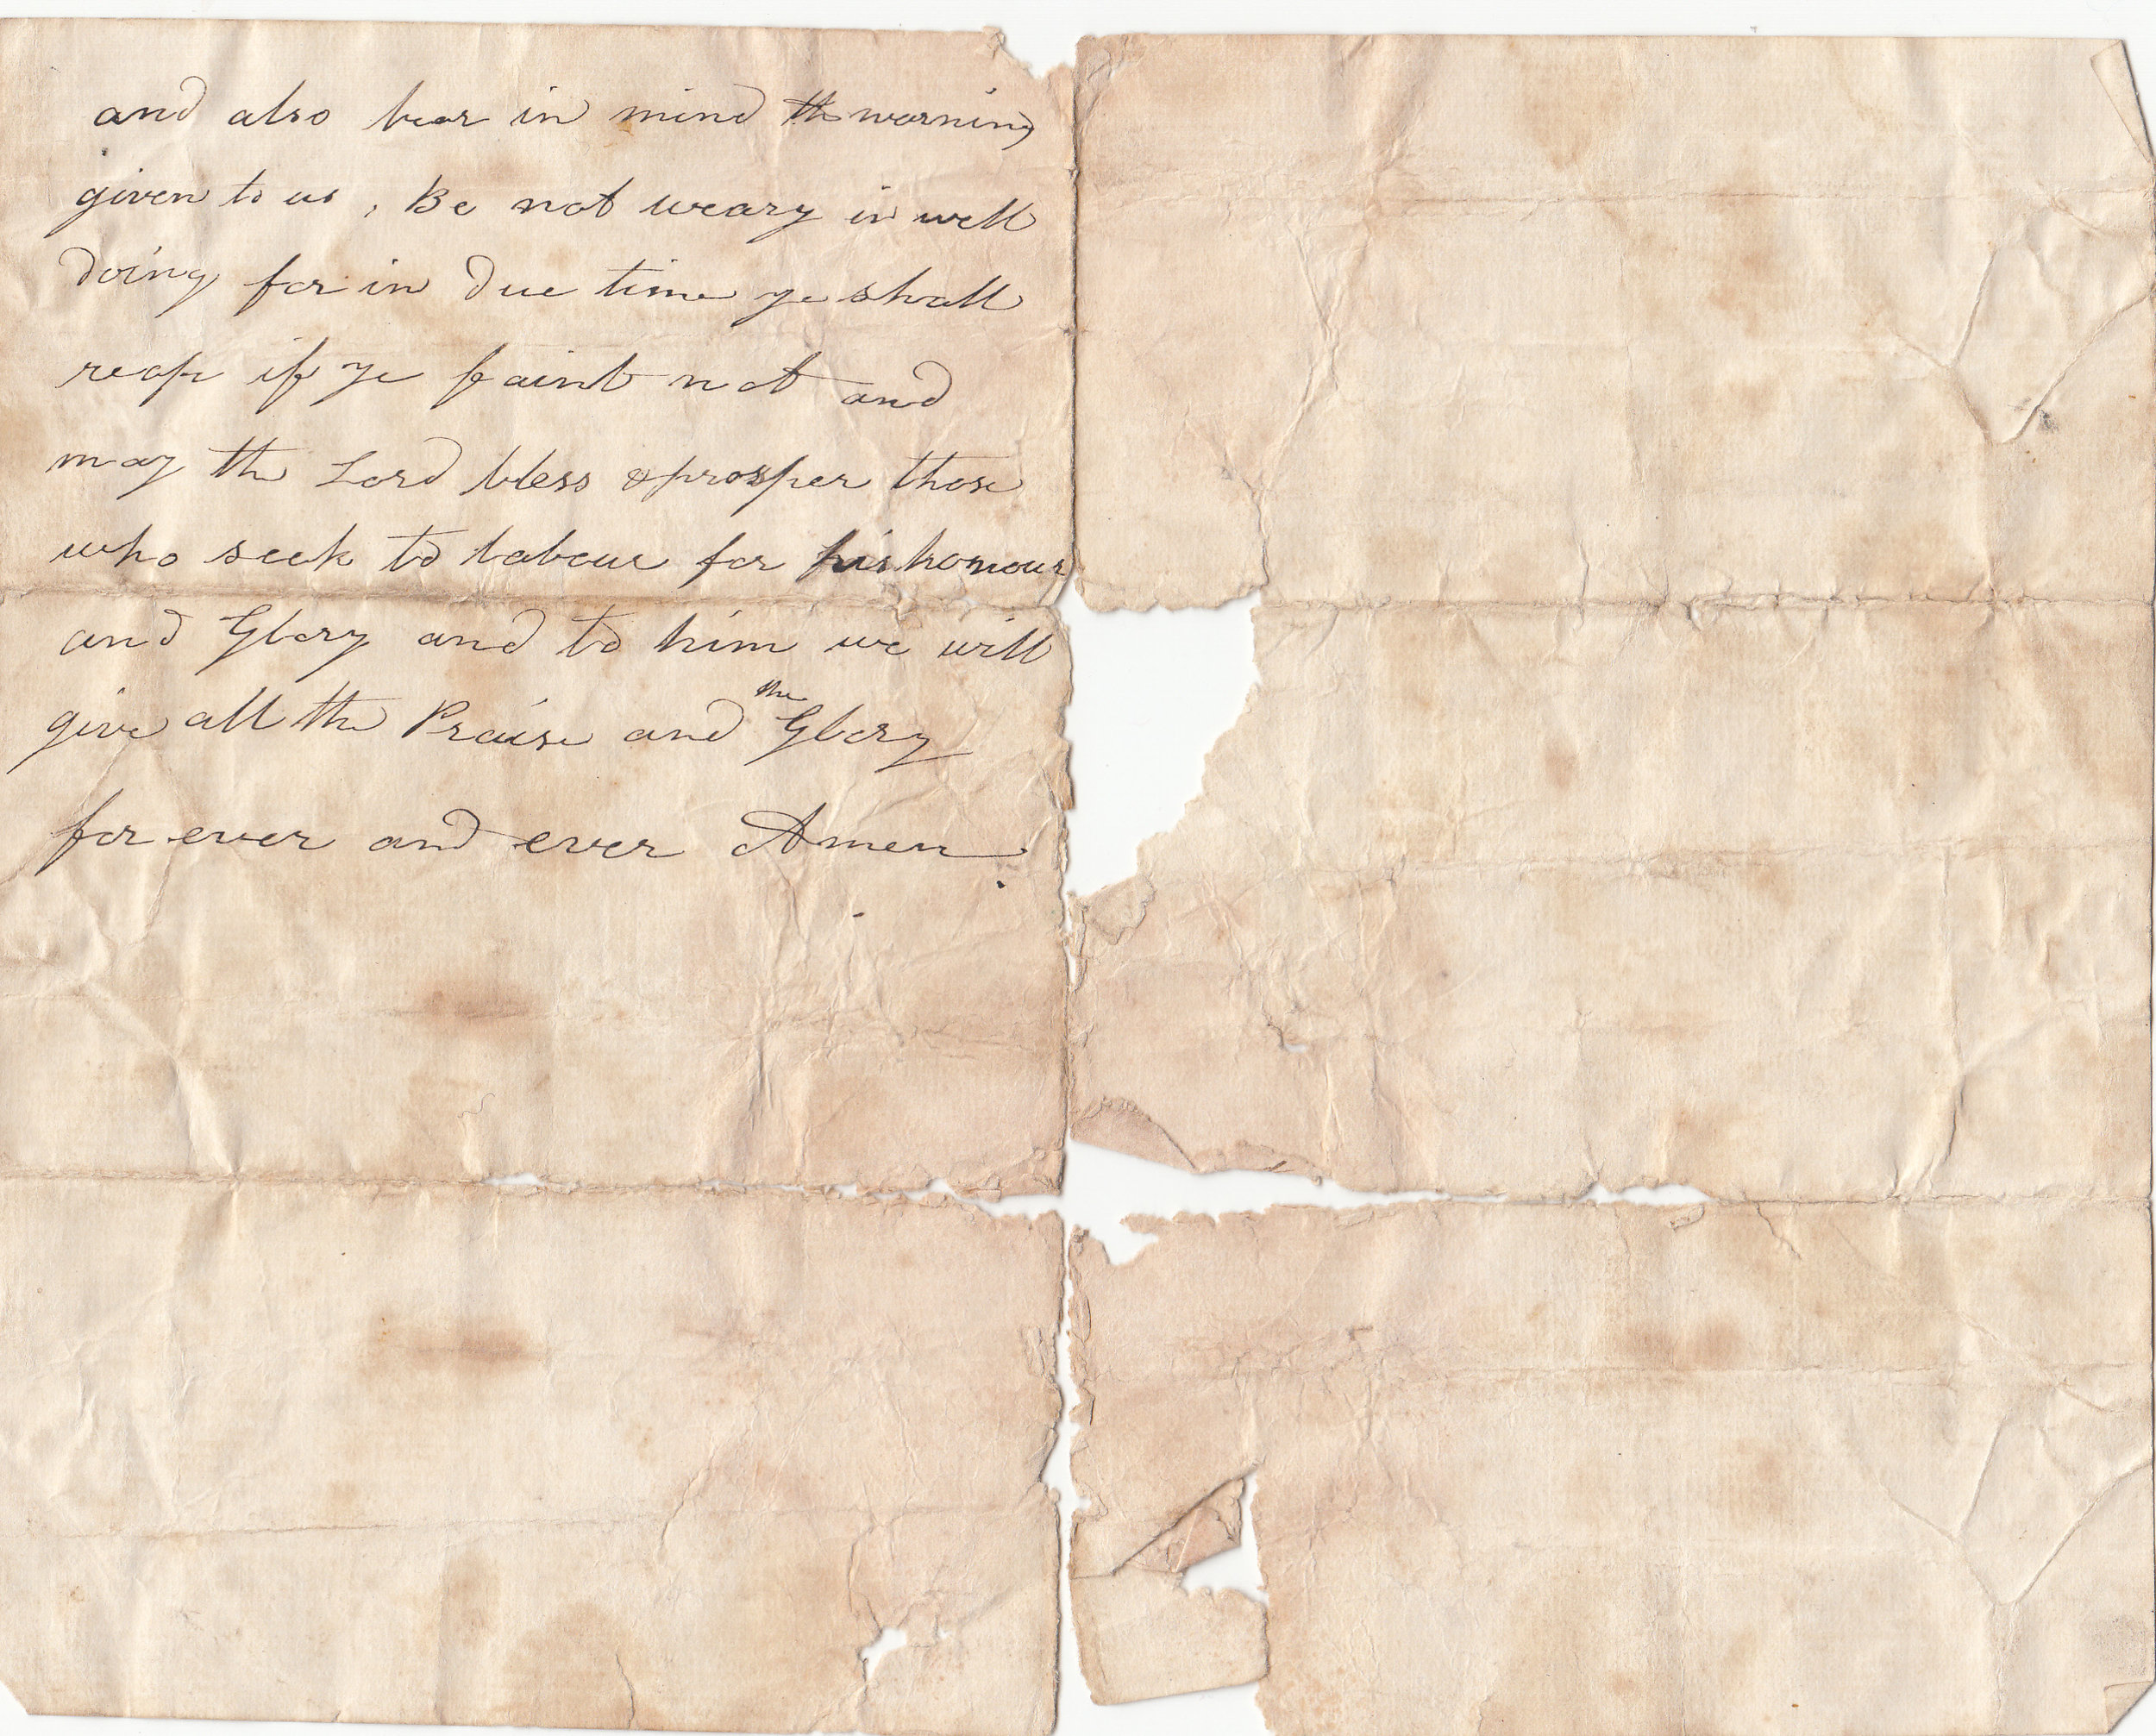 and also bear in mind the warning
given to us, Be not weary in well
doing for in due time ye shall
reap if ye faint not and
may the Lord bless & prosper those
who seek to labour for his honour
and Glory and to him we will
give all the Praise and the Glory
for ever and ever Amen.